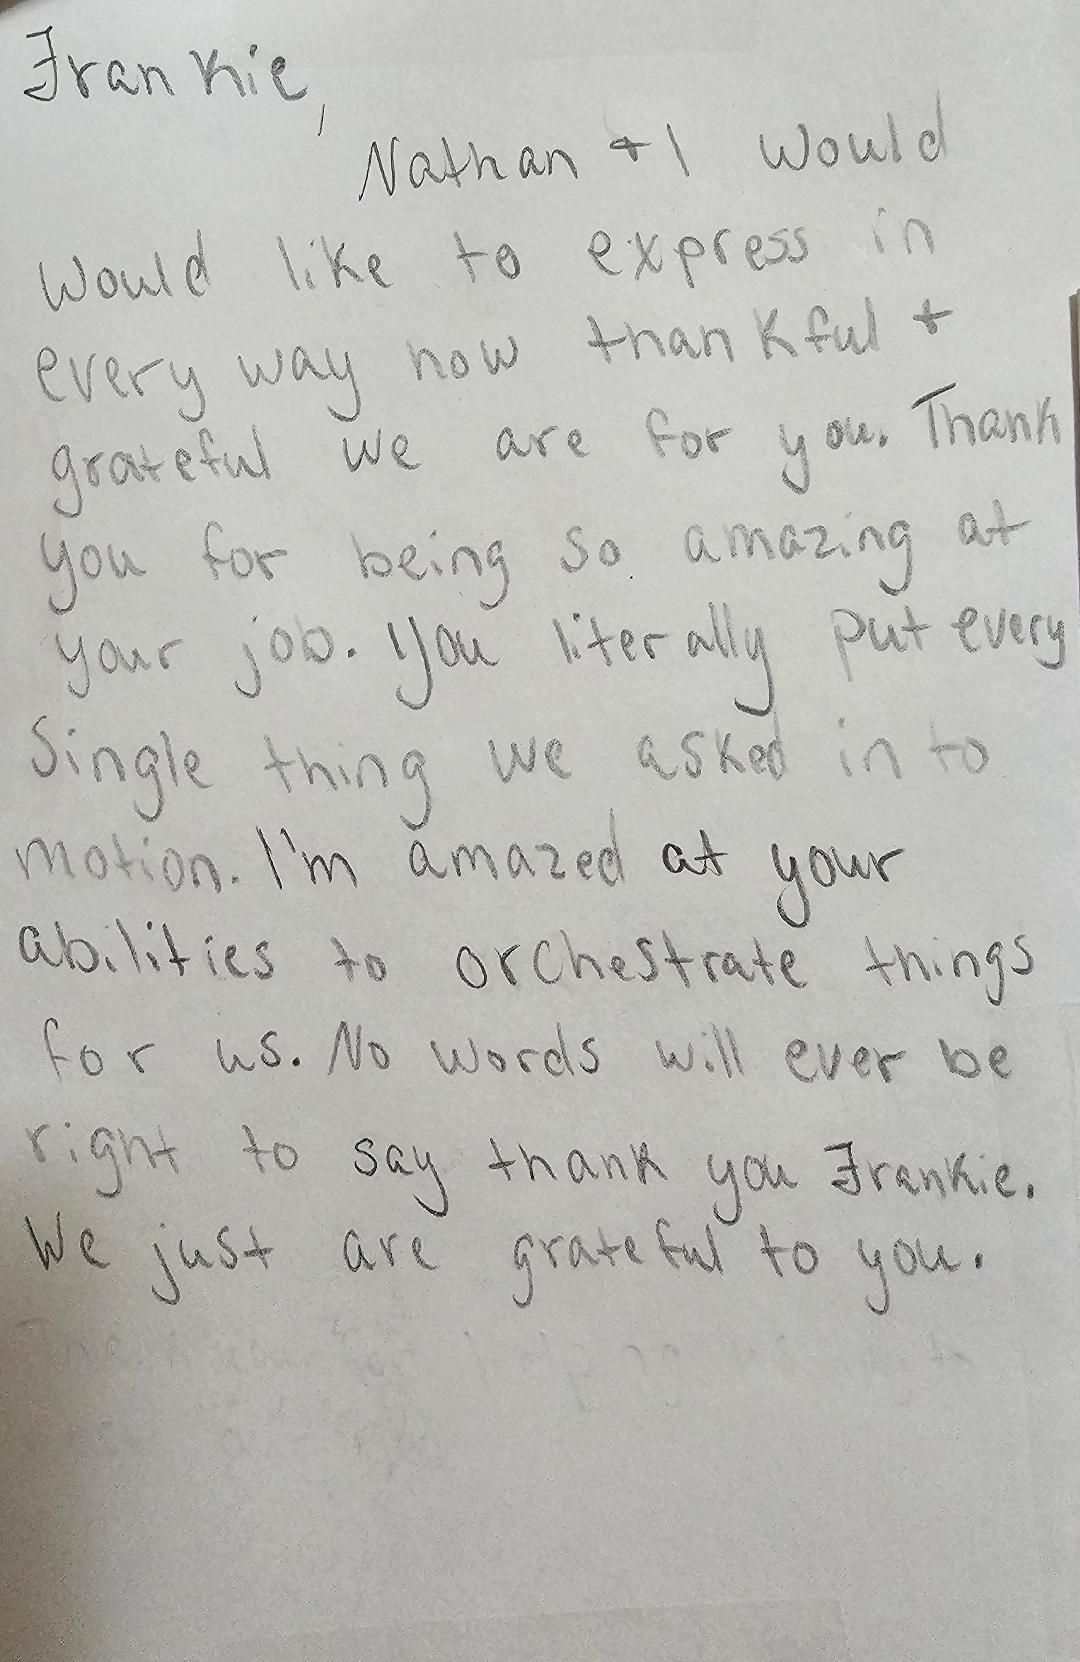 Frankie,
Nathan + I would
would like to express in
every way how thankful +
grateful we are for you. Thank
you for being so amazing at
your job. You literally put every
single thing we asked in to
motion. I'm amazed at your
abilities to orchestrate things
for us. No words will ever be
right to say thank you Frankie.
We just are grateful to you.